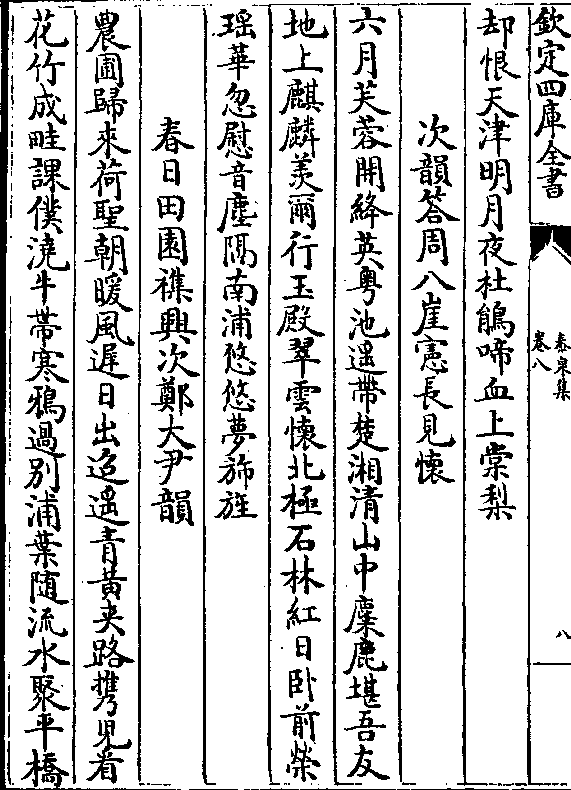 欽定四庫全書
泰泉集
卷八
八
却恨天津明月夜杜鵑啼血上棠梨
次韻答周八崖憲長見懷
六月芙蓉開絳英粤池遥帶楚湘清山中麋鹿堪吾友
地上麒麟羡爾行玉殿翠雲懷北極石林紅日卧前榮
瑶華忽慰音塵隔南浦悠悠夢斾旌
春日田園襍興次鄭大尹韻
農圃歸來荷聖朝暖風遲日出迢遥青黄夹路携兒看
花竹成畦課僕澆牛帶寒鴉過别浦葉随流水聚平橋